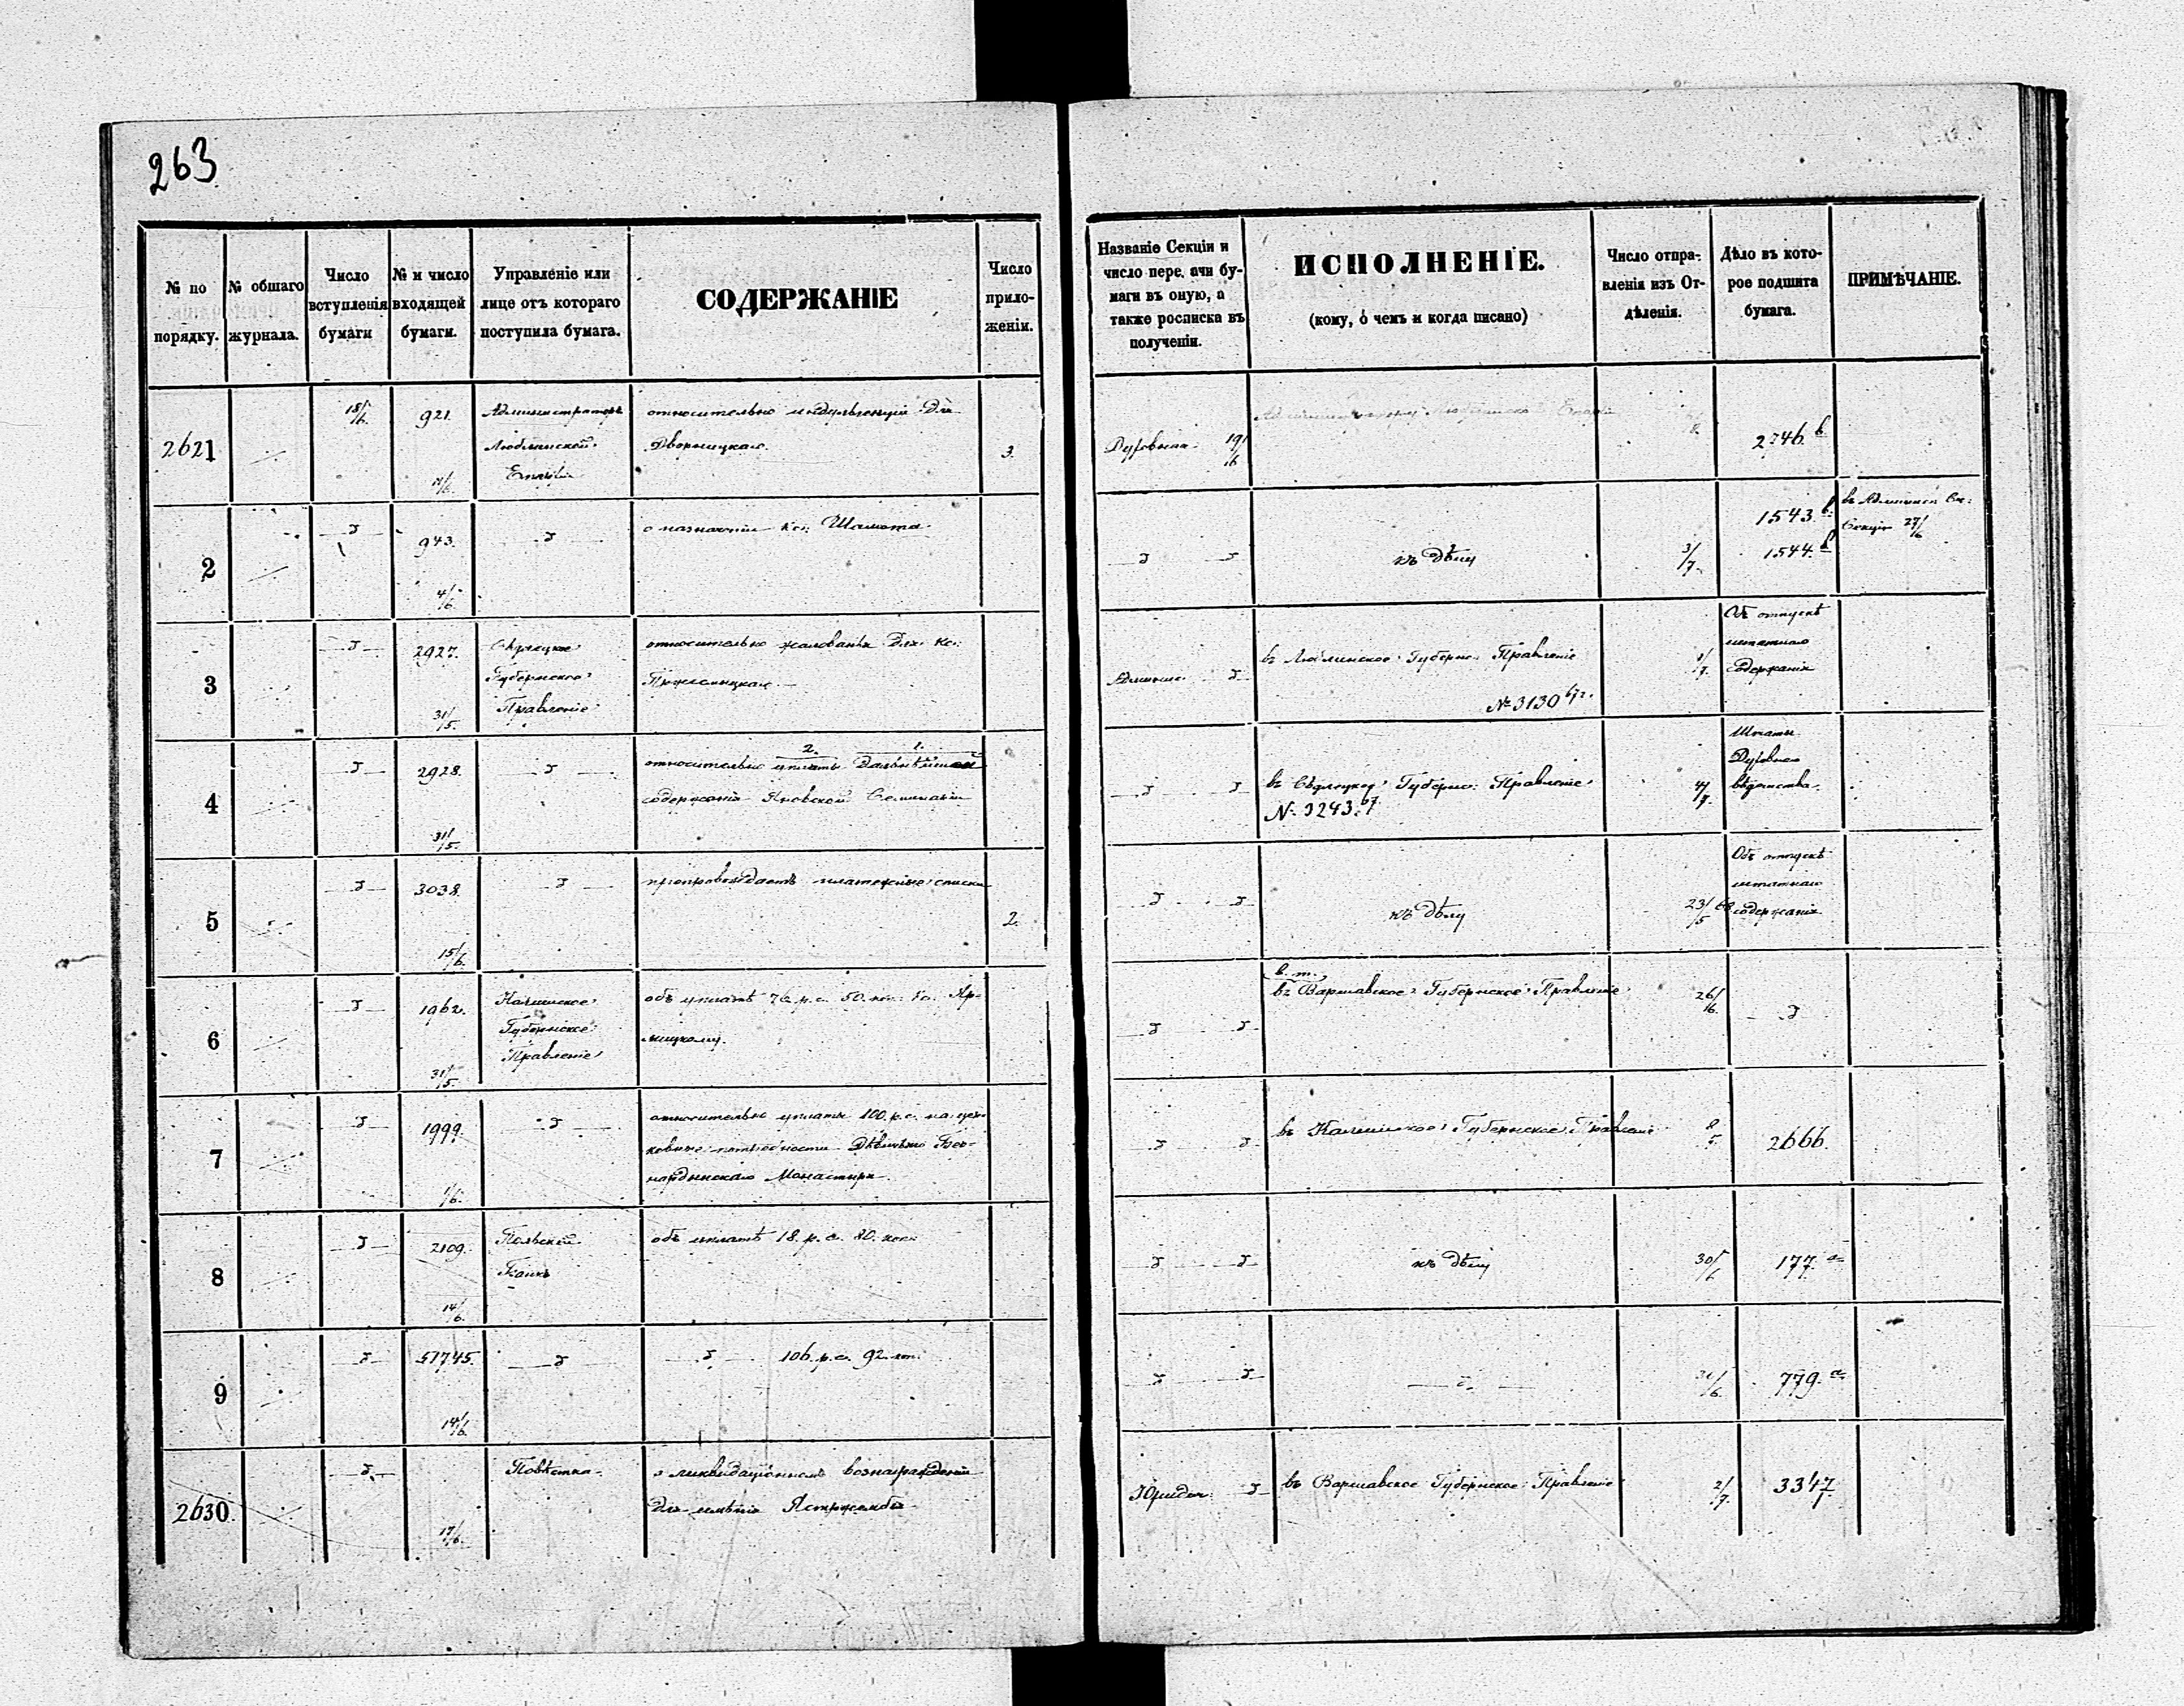 263
№ по порядку.
№ общаго журнала.
Число вступленія бумаги
№ и число входящей бумаги.
Управленіе или лице отъ котораго поступила бумага.
СОДЕРЖАНІЕ
Число приложеніи.
Названіе Секціи и число пере. ачи бумаги въ оную, а также росписка въ полученіи.
ИСПОЛНЕНІЕ.
(кому, о чемъ и когда писано)
Число отправленія изъ Отдѣленія.
Дѣло въ которое подшита бумага.
ПРИМѢЧАНІЕ.
2621
18/6.
921.
17/6.
Администраторъ
Люблинской
Епархіи
относительно индульгенціи Для
Дворницкаго.
3.
Духовная 19/6
2746 b
2
943.
4/6
о назначеніи Кс:
къ дѣлу
3/7.
1543. b
1544. b
27/6
3
2927.
31/5.
Сѣдлецкое
Губернское
Правленіе
относительно жалованья Для Кс:
Админис.
въ Люблинское Губерн. Правленіе
№ 3130 67 г.
1/7.
Объ отпускѣ
штатнаго
содержанія
4
2928.
31/5.
2. 1.
относительно уплаты Дальнѣйшей
содержанія Яновской Семинаріи
въ Сѣдлецкое Губерн: Правленіе
№ 3243. 67
4/7.
Штаты
Духовнаго
вѣдомства.
5
3038.
15/6.
препровождаетъ платежные списки
2.
къ дѣлу
23/5 68
Объ отпускѣ
штатнаго
содержанія
6
1962.
31/5.
Калишское
Губернское
Правленіе
объ уплатѣ 76 р. с. 50. коп: Кс. Яр-
мицкому.
в. т.
въ Варшавское Губернское Правленіе
26/6.
7
1999.
1/6.
относительно уплаты 100. р. с. на цер-
ковные потребности Дѣвичьяго Бер-
нардинскаго Монастыря
въ Калишское Губернское Правленіе
2666.
8
2109.
14/6.
Польскій
Банкъ
объ уплатѣ 18. р. с. 80. коп:
къ дѣлу
30/6
177. a
9
51745.
14/6.
106. р. с. 92. коп:
30/6.
779. a
2630.
17/6.
Повѣстка.
о ликвидаціонномъ вознагражденіи
для имѣнія Ястржембя
Юридич.
въ Варшавское Губернское Правленіе
2/7.
3347